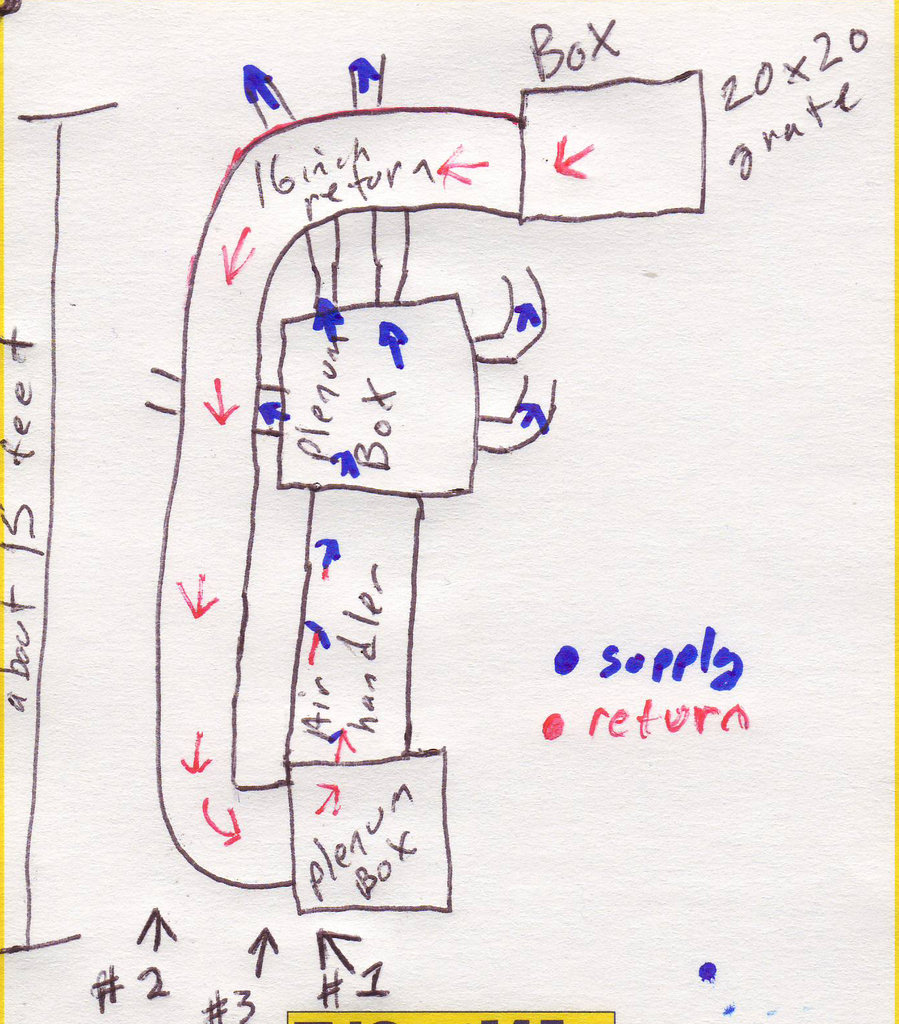 Box
20x20
grate
16 inch
return
plenum
Box
about 15 feet
Air
handler
supply
return
plenum
Box
#2
#3
#1